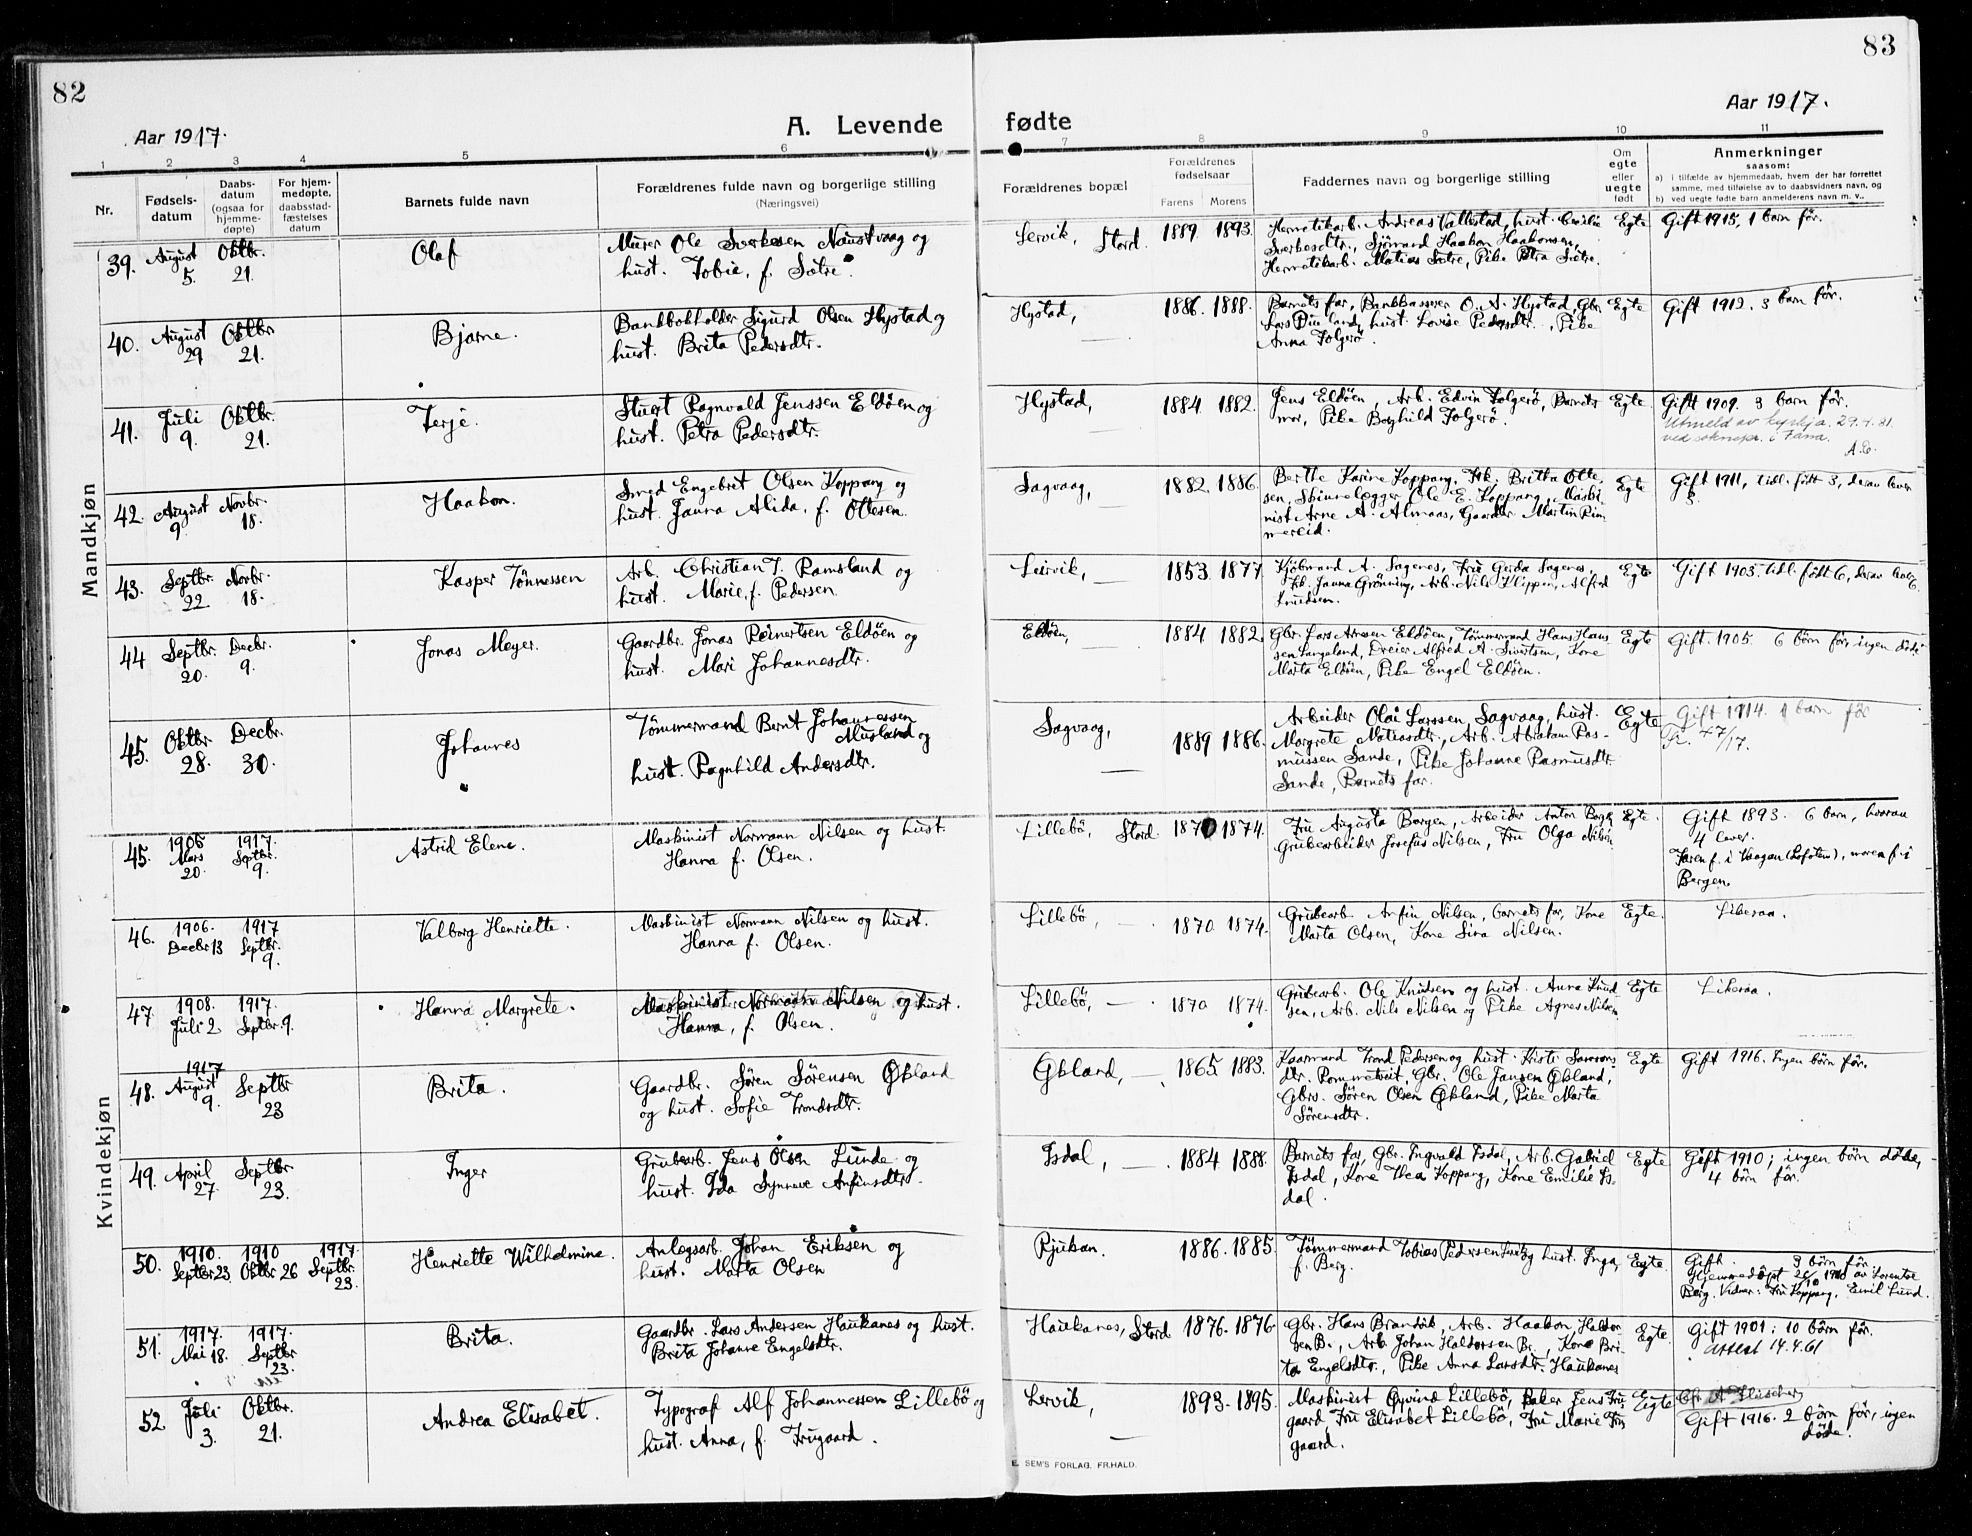 82
Aar 1917.
A. Levende
fødte
83
Aar 1917.
1 2 3 4 5 6 7 8 9 10 11
Nr.
Fødsels-
datum
Daabs-
datum
(ogsaa for
hjemme-
døpte)
For hjem-
medøpte,
daabsstad-
fæstelses
datum
Barnets fulde navn
Forældrenes fulde navn og borgerlige stilling
(Næringsvei)
Forældrenes bopæl
Forældrenes
fødselsaar
Farens Morens
Faddernes navn og borgerlige stilling
Om
egte
eller
uegte
født
Anmerkninger
saasom:
a) i tilfælde av hjemmedaab, hvem der har forrettet
samme, med tilføielse av to daabsvidners navn, og
b) ved uegte fødte barn anmelderens navn m. v..
Mandkjøn
39. August 5. Oktbr. 21.
Olaf
Murer Ole Sverkesen Naustvaag og
hust. Tobie, f. Sætre.
Lervik, Stord.
1889. 1893.
Hermetikarb. Andreas Vallestad, hust. Cecilie
Sverkesdtr., Sjömand Haakon Haakonsen,
Hermetikarb. Matias Sætre, Pike Petra Sætre.
Egte
Gift 1915, 1 barn för.
40. August 29 Oktbr. 21.
Bjarne.
Bankbokholder Sigurd Olsen Hystad og
hust. Brita Pedersdtr.
Hystad, —
1886. 1888.
Barnets far, Bankkasserer O. A. Hystad, Gbr.
Lars Duesland, hust. Lovise Pedersdtr., Pike
Anna Folgerö.
Egte
Gift 1912. 3 barn för.
41. Juli 9. Oktbr. 21.
Terje.
Stuert Ragnvald Jenssen Eldöen og
hust. Petra Pedersdtr.
Hystad, —
1884 1882.
Jens Eldöen, Arb. Edvin Folgerö, Barnets
mor, Pike Borghild Folgerö.
Egte
Gift 1909. 3 barn för.
Utmeld av kyrkja. 29.4.81.
ved soknepr. i Fana.
42. August 9. Novbr. 18.
Haakon.
Smed Engebret Olsen Koppang og
hust. Janna Alida, f. Ottesen.
Sagvaag, —
1882. 1886.
Berthe Karine Koppang, Frk. Britha Otte-
sen, Skinnelægger Ole E. Koppang, Maski-
nist Arne A. Almaas, Gaardbr. Martin Rim-
mereid.
Egte
Gift 1911, tidl. født 3, derav lever
3.
43. Septbr. 22 Novbr. 18.
Kasper Tönnessen
Arb. Christian T. Ramsland og
hust. Marie, f. Pedersen.
Leirvik, —
1853. 1877
Kjöbmand A. Sagenes, Fru Gerda Sagenes,
Frk. Janna Grönning, Arb. Nils Klippen, Alfred
Knudsen.
Egte
Gift 1903. tidl. født 6, derav lever 6.
44 Septbr. 20. Decbr. 9.
Jonas Meyer.
Gaardbr. Jonas Reinertsen Eldöen og
hust. Mari Johannesdtr.
Eldöen, —
1884 1882.
Gbr. Lars Arnesen Eldöen, Tömmermand Hans Han-
sen Langeland, Dreier Alfred A. Sivertsen, Kone
Marta Eldöen, Pike Engel Eldöen.
Egte
Gift. 1905. 6 börn för, ingen døde.
45. Oktbr. 28. Decbr. 30.
Johannes
Tömmermand Bernt Johannessen
Musland og
hust. Ragnhild Andersdtr.
Sagvaag, —
1889 1886.
Arbeider Olai Larssen, Sagvaag, hust.
Margrete Matiasdtr., Arb. Abraham Ras-
mussen Sande, Pike Johanne Rasmusdtr.
Sande, Barnets far.
Egte
Gift 1914. 1 barn för
Kvindekjøn
45. 1905 Mars 20. 1917. Septbr. 9.
Astrid Elene.
Maskinist Normann Nilsen og hust.
Hanna f. Olsen.
Lillebö, Stord.
1870 1874.
Fru Augusta Borgen, Arbeider Anton Borge,
Grubearbeider Josefus Nilsen, Fru Olga Nilsen
Egte.
Gift 1893. 6 barn, hvorav
4 lever.
Faren f. i Vaagan (Lofoten), moren f. i
Bergen.
46. 1906. Decbr 13 1917 Septbr. 9.
Valborg Henriette.
Maskinist Normann Nilsen og hust.
Hanna f. Olsen.
Lillebö, —.
1870 1874.
Grubearb. Anfin Nilsen, barnets far, Kone
Marta Olsen, Kone Sina Nilsen.
Egte.
Likesaa.
47 1908. Juli 2 1917. Septbr. 9.
Hanna Margrete.
Maskinist Normann Nilsen og hust.
Hanna, f. Olsen.
Lillebö, —.
1870 1874.
Grubearb. Ole Knudsen og hust. Anna Knud-
sen, Arb. Nils Nilsen og Pike Agnes Nilsen
Egte
Likesaa.
48. 1917 August 9. Septbr 23
Brita.
Gaardbr. Sören Sörensen Økland
og hust. Sofie Trondsdtr.
Økland, —.
1865 1883.
Kaarmand Trond Pedersen og hust. Kristi Samsons-
dtr. Rommetveit, Gbr. Ole Jansen Økland,
Gbrs. Sören Olsen Økland, Pike Marta
Sörensdtr.
Egte
Gift 1916. Ingen börn för.
49. April 27. Septbr 23.
Inger
Grubearb. Jens Olsen Lunde og
hust. Ida Synneve Anfinsdtr.
Isdal, —.
1884 1888.
Barnets far, Gbr. Ingvald Isdal, Arb. Gabriel
Isdal, Kone Thea Koppang, Kone Emilie Is-
dal.
Egte
Gift 1910; ingen börn døde,
4 börn för.
50. 1910. Septbr 23 1910 Oktbr 26 1917. Septbr. 23.
Henriette Wilhelmine.
Anlegsarb. Johan Eriksen og
hust. Marta Olsen
Rjukan.
1886. 1885.
Tömmermand Tobias Pedersen Lund og hust. Inga,
f. Berg.
Egte.
Gift. 3 börn för.
Hjemmedöpt 26/10 1910 av Lorentse
Berg. Vidner: Fru Koppang, Emil Lund.
51. 1917. Mai 18. 1917. Septbr 23.
Brita.
Gaardbr. Lars Andersen Haukanes og hust.
Brita Johanne Engelsdtr.
Haukanes, Stord
1876. 1876.
Gbr. Hans Brandvik, Arb. Haakon Haldor-
sen B., Arb. Johan Haldorsen Br., Kone Bri-
ta Engelsdtr., Pike Anna Larsdtr. Haukanes
Egte
Gift 1901; 10 börn för.
Attest 14.4.61
52. Juli 3. Oktbr. 21.
Andrea Elisabet.
Typograf Alf Johannessen Lillebö og
hust. Anna, f. Frugaard.
Lervik, —
1893. 1895.
Maskinist Öyvind Lillebö, Baker Jens Fru-
gaard, Fru Elisabet Lillebö, Fru Marie Fru-
gaard.
Egte
Gift 1916. 2 börn för, ingen
døde.
E. SEM'S FORLAG. FR.HALD.